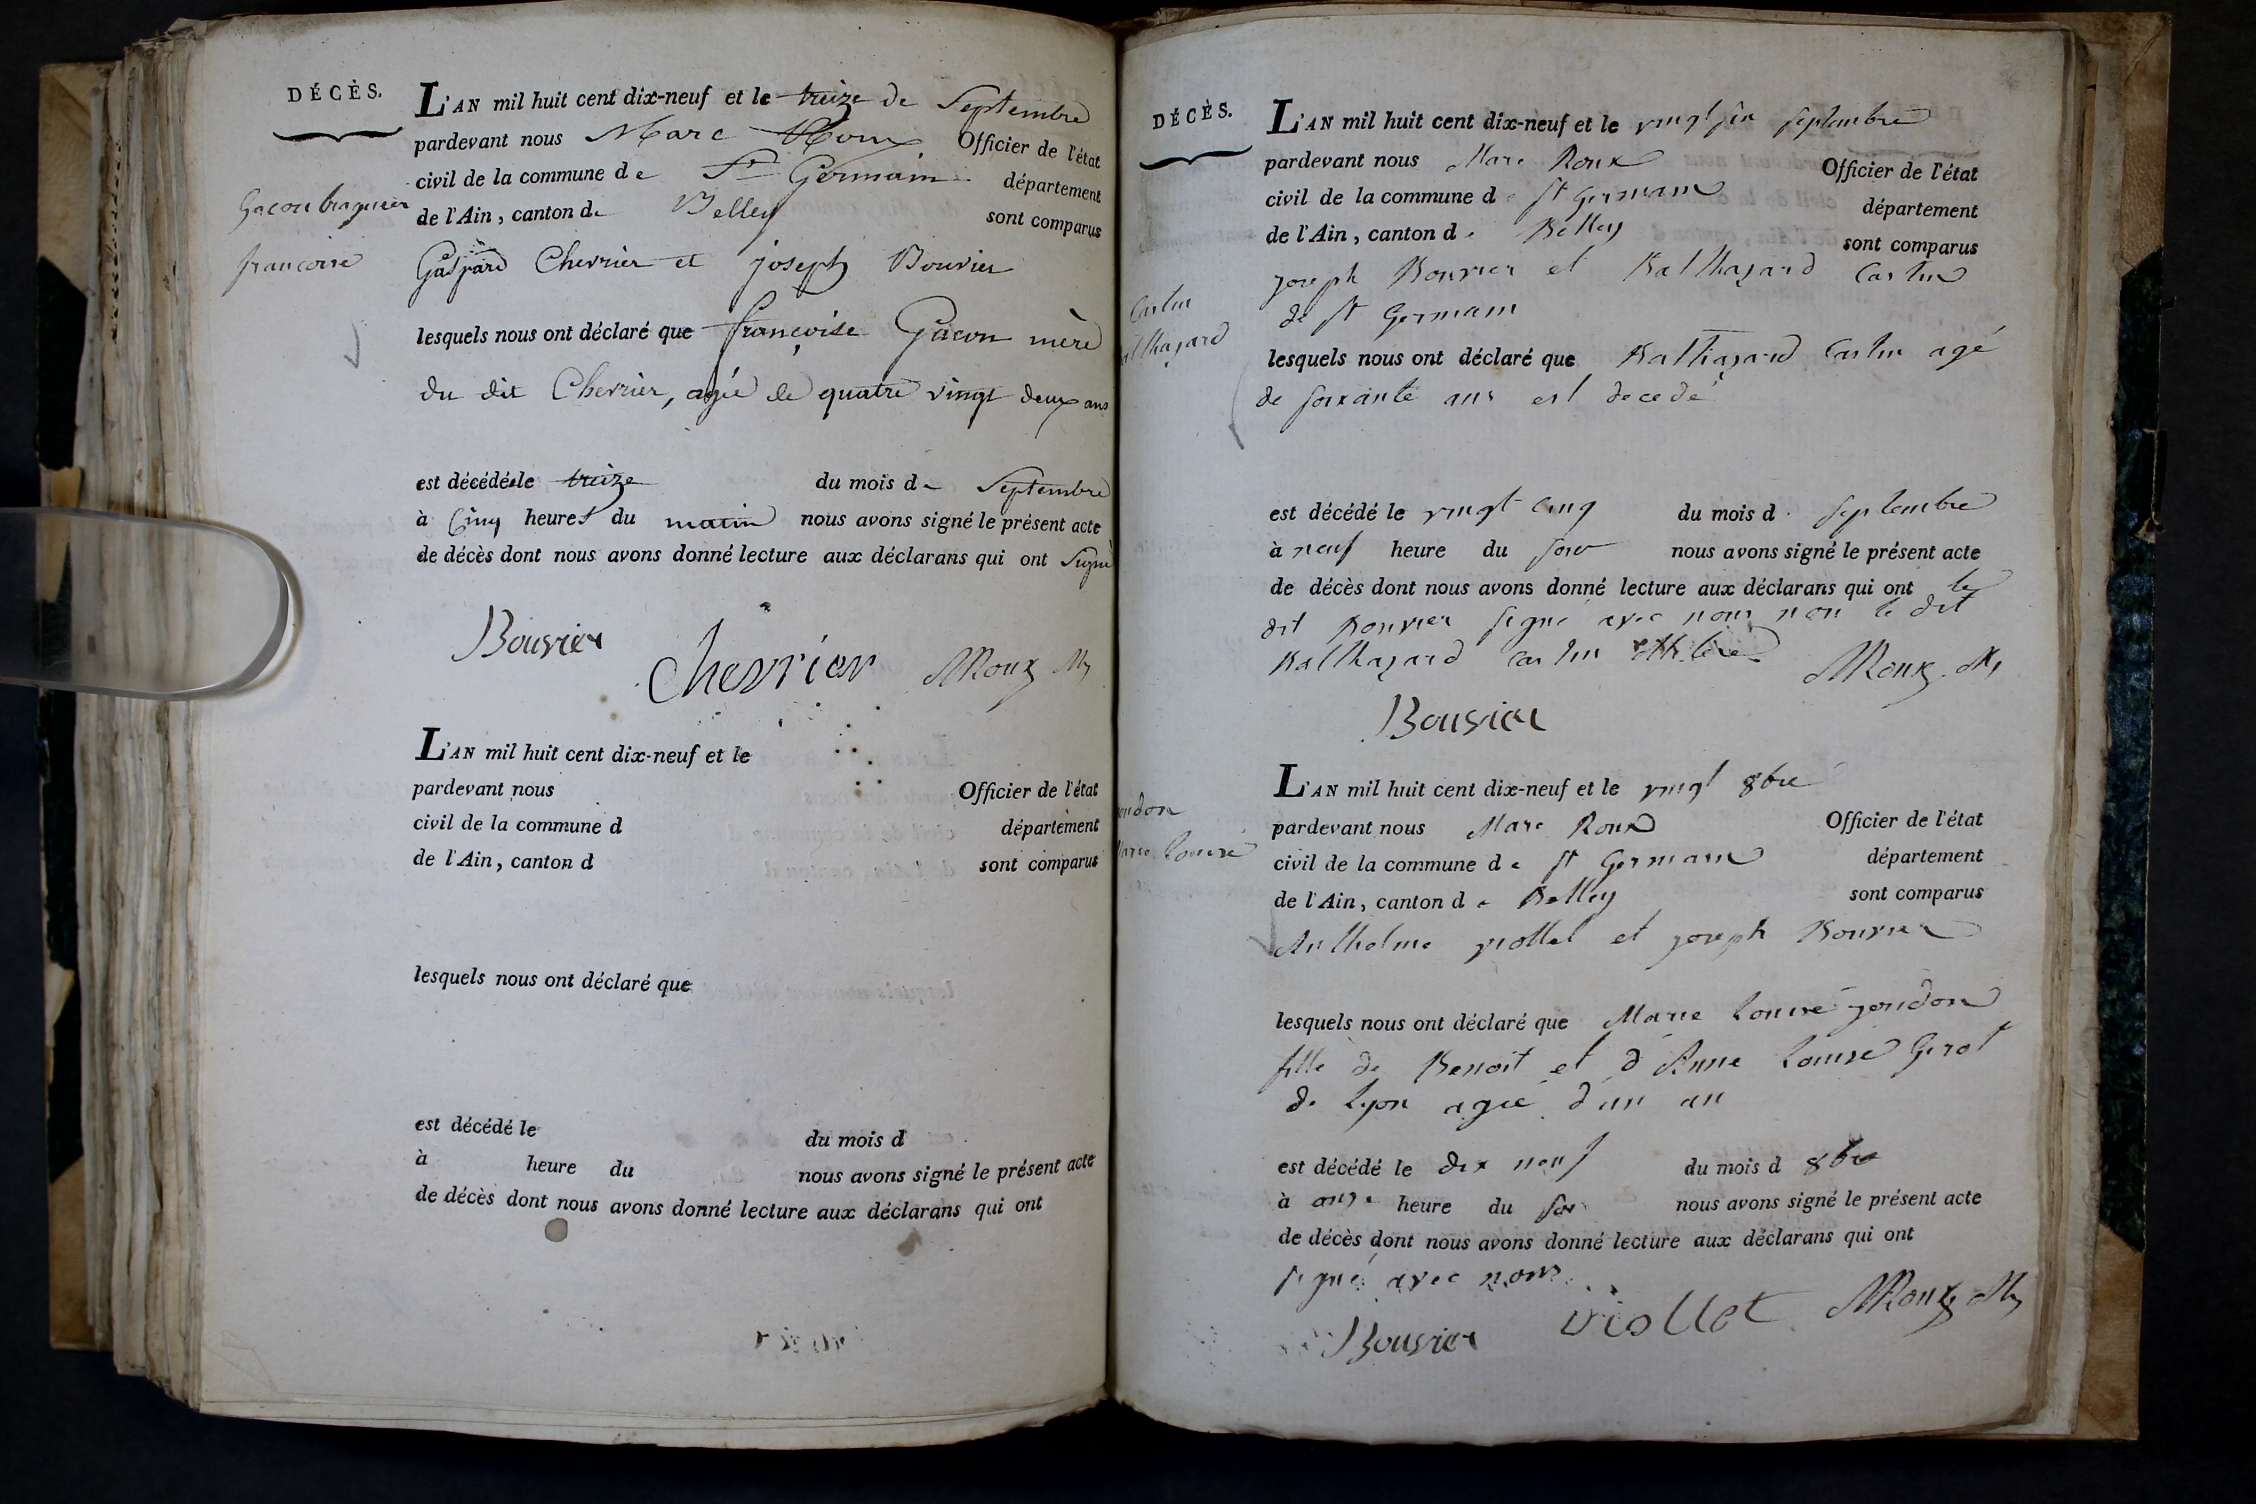 DÉCÈS.
L'AN mil huit cent dix-neuf et le treize de Septembre
pardevant nous Marc Roux Officier de l'état
civil de la commune de St Germain département
de l'Ain, canton de Belley sont comparus
Gacon
françoise
Gaspard Chevrier et joseph Bouvier
lesquels nous ont déclaré que françoise Gacon mère
du dit Chevrier, agée de quatre vingt deux ans
est décédée le treize du mois de Septembre
à Cinq heures du matin nous avons signé le présent acte
de décès dont nous avons donné lecture aux déclarans qui ont Signé
Bouvier
Chevrier MRoux
L'AN mil huit cent dix-neuf et le
pardevant nous Officier de l'état
civil de la commune d département
de l'Ain, canton d sont comparus
lesquels nous ont déclaré que
est décédé le du mois d
à heure du nous avons signé le présent acte
de décès dont nous avons donné lecture aux déclarans qui ont
DÉCÈS.
L'AN mil huit cent dix-neuf et le vingt six septembre
pardevant nous Marc Roux Officier de l'état
civil de la commune de St Germain département
de l'Ain, canton de Belley sont comparus
joseph Bouvier et Balthazard Castin
de St Germain
Castin
althazard
lesquels nous ont déclaré que Balthazard Castin agé
de soixante ans est decedé
est décédé le vingt cinq du mois d septembre
à neuf heure du soir nous avons signé le présent acte
de décès dont nous avons donné lecture aux déclarans qui ont le
dit Bouvier signé avec nous non le dit
Balthazard Castin
MRoux
Bouvier
L'AN mil huit cent dix-neuf et le vingt 8bre
oudon
pardevant nous Marc Roux Officier de l'état
arie Louise
civil de la commune de St Germain département
de l'Ain, canton de Belley sont comparus
Anthelme viollet et joseph Bouvier
lesquels nous ont déclaré que Marie Louise joudon
fille de Benoit et d'Anne Louise Girot
de Lyon agée d'un an
est décédé le dix neuf du mois d 8bre
à onze heure du soir nous avons signé le présent acte
de décès dont nous avons donné lecture aux déclarans qui ont
signé avec nous.
Bouvier viollet MRoux